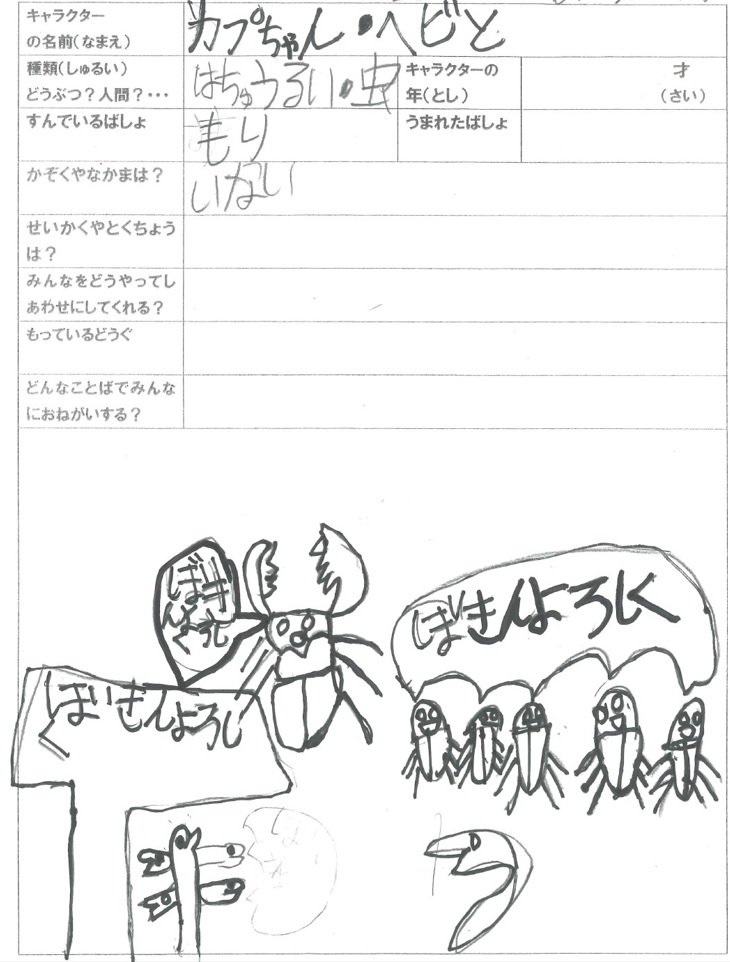 キャラクター
の名前(なまえ)
カプちゃん・ヘビと
種類(しゅるい)
どうぶつ?人間?・・・
はちゅうるい・虫
キャラクターの
年(とし)
才
(さい)
すんでいるばしょ
もり
うまれたばしょ
かぞくやなかまは?
いない
せいかくやとくちょう
は?
みんなをどうやってし
あわせにしてくれる?
もっているどうぐ
どんなことばでみんな
におねがいする?
ばいきんよろしく
ばいきんよろし
く